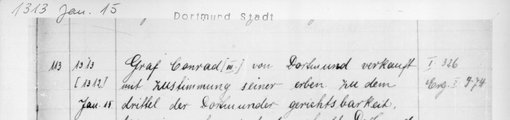 1313 Jan. 15
Dortmund Stadt
113 1313 Graf Conrad [III] von Dortmund verkauft I 326
[1312] mit zustimmung seiner erben zu dem Erg. I 974
Jan. 15 drittel der Dortmunder gerichtsbarkeit,